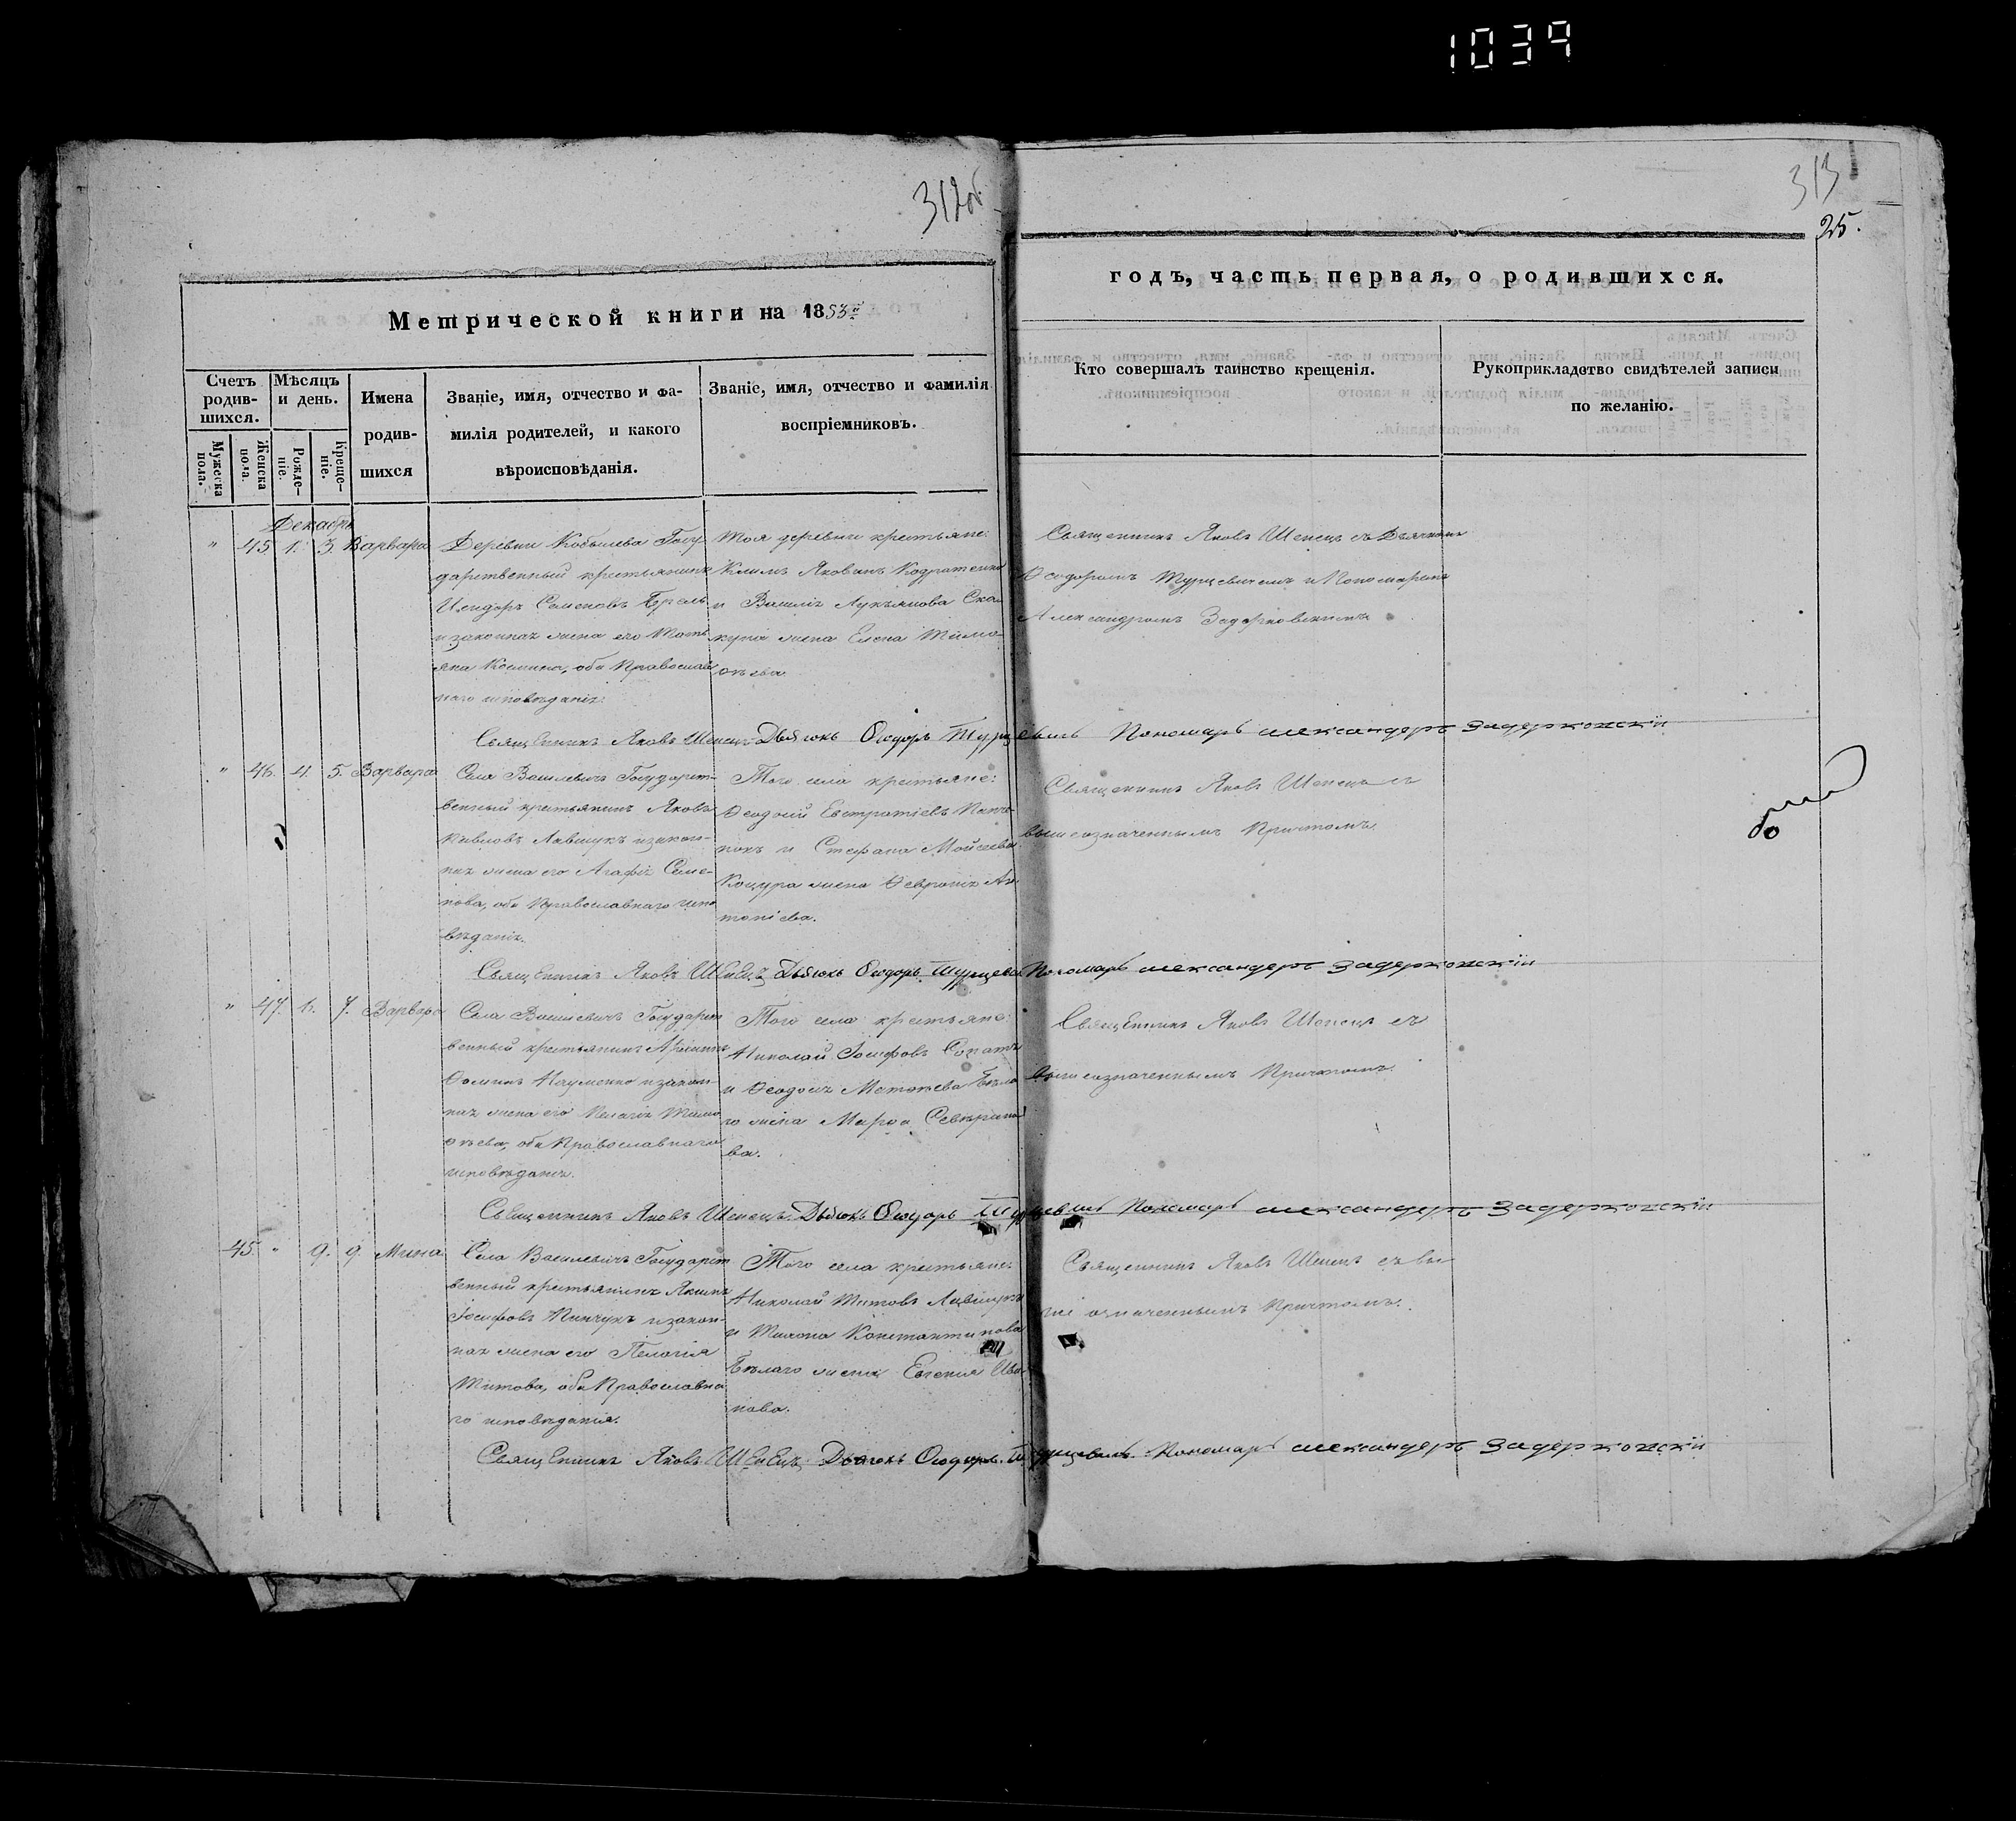 1039
312об.
313
25.
Метрической книги на 1853й
годъ, часть первая, о родившихся.
Счетъ родив-шихся.
Мужеска пола.
Женска пола.
Мѣсяцъ и день.
Рожде-ніе.
Креще-ніе.
Имена родив-шихся
Званіе, имя, отчество и фа-
милія родителей, и какого
вѣроисповѣданія.
Званіе, имя, отчество и фамилія
воспріемниковъ.
Кто совершалъ таинство крещенія.
Рукоприкладство свидѣтелей записи
по желанію.
Декабрь
" 45 1. 3. Варвара
Деревни Кобылева Госу-
дарственный крестьянинъ
Исидоръ Семеновъ
и законная жена его Тать
яна оба Православ
наго исповѣданія.
Тоя деревни крестьяне:
Климъ Яковинъ Кодратенко
и Василія Лукьянова Ска
куна жена Елена Тимо
ѳѣева
Священникъ Яковъ Шепецъ съ Дьячкомъ
Ѳеодоромъ Турцевичемъ и Пономаремъ
Александромъ Задерковскимъ
Священникъ Яковъ Шепецъ Дьячокъ Ѳеодоръ Турцевичъ Пономарь александеръ Задерковскій
" 46. 4. 5. Варвара
Села Василевичъ Государст-
венный крестьянинъ Яковъ
Павловъ и закон-
ная жена его Агафія Семе-
нова, оба Православнаго испо
вѣданія.
Того села крестьяне:
Ѳеодосій Евстратіевъ
и Стефана Мойсеева
Коцура жена Ѳевронія Ан
тоніева.
Священникъ Яковъ Шепецъ съ
вышеозначеннымъ Причтомъ.
Священникъ Яковъ Шепецъ Дьячокъ Ѳеодоръ Турцевичъ Пономарь александеръ Задерковскій
" 47. 6. 7. Варвара
Села Василевичъ Государст
венный крестьянинъ
Ѳоминъ Науменко и закон-
ная жена его Пелагія Тимо
ѳѣева, оба Православнаго
исповѣданія.
Того села крестьяне
Николай Іосифовъ
и Ѳеодосія Матѳѣева Бѣла
го жена Марѳа Севѣрино
ва.
Священникъ Яковъ Шепецъ съ
вышеозначеннымъ Причтомъ.
Священникъ Яковъ Шепецъ. Дьячокъ Ѳеодоръ Турцевичъ Пономарь александеръ Задерковскій
45 " 9. 9. Мина
Села Василевичъ Государст
венный крестьянинъ Якимъ
Іосифовъ Пинчукъ и закон-
ная жена его Пелагія
Титова, оба Православна
го исповѣданія.
Того села крестьяне:
Николай Титовъ
и Константинова
Бѣлаго жена Евгенія Ива
нова.
Священникъ Яковъ Шепецъ съ вы
ше означеннымъ Причтомъ.
Священникъ Яковъ Шепецъ. Дьячокъ Ѳеодоръ Турцевичъ. Пономарь александеръ Задерковскій